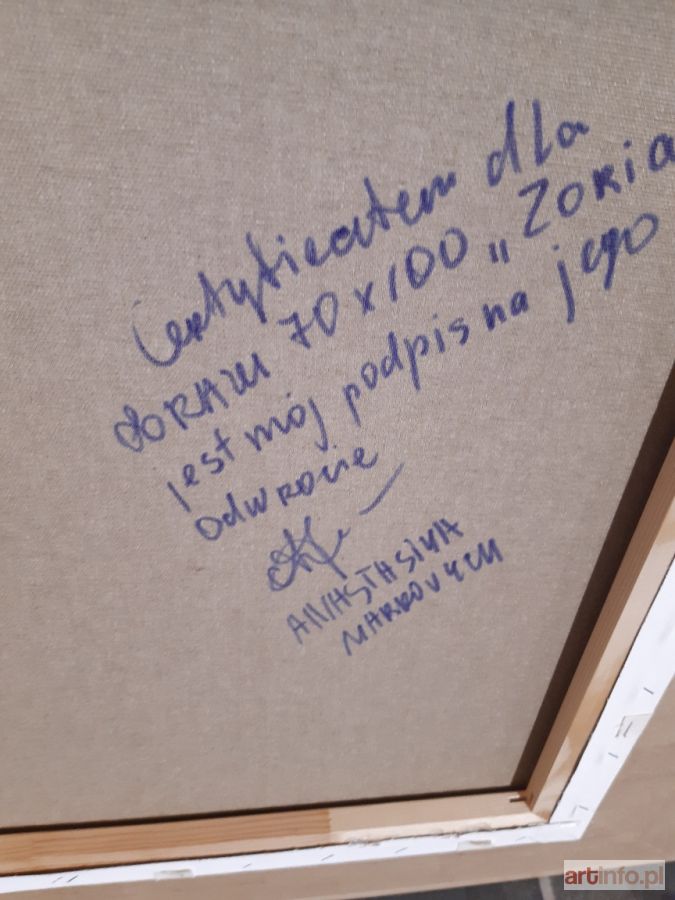 Certyficatem dla
obrazu 70x100 „ZORIA
jest mój podpis na jego
odwrocie
ANASTASIYA
MARKOVYCH
artinfo.pl